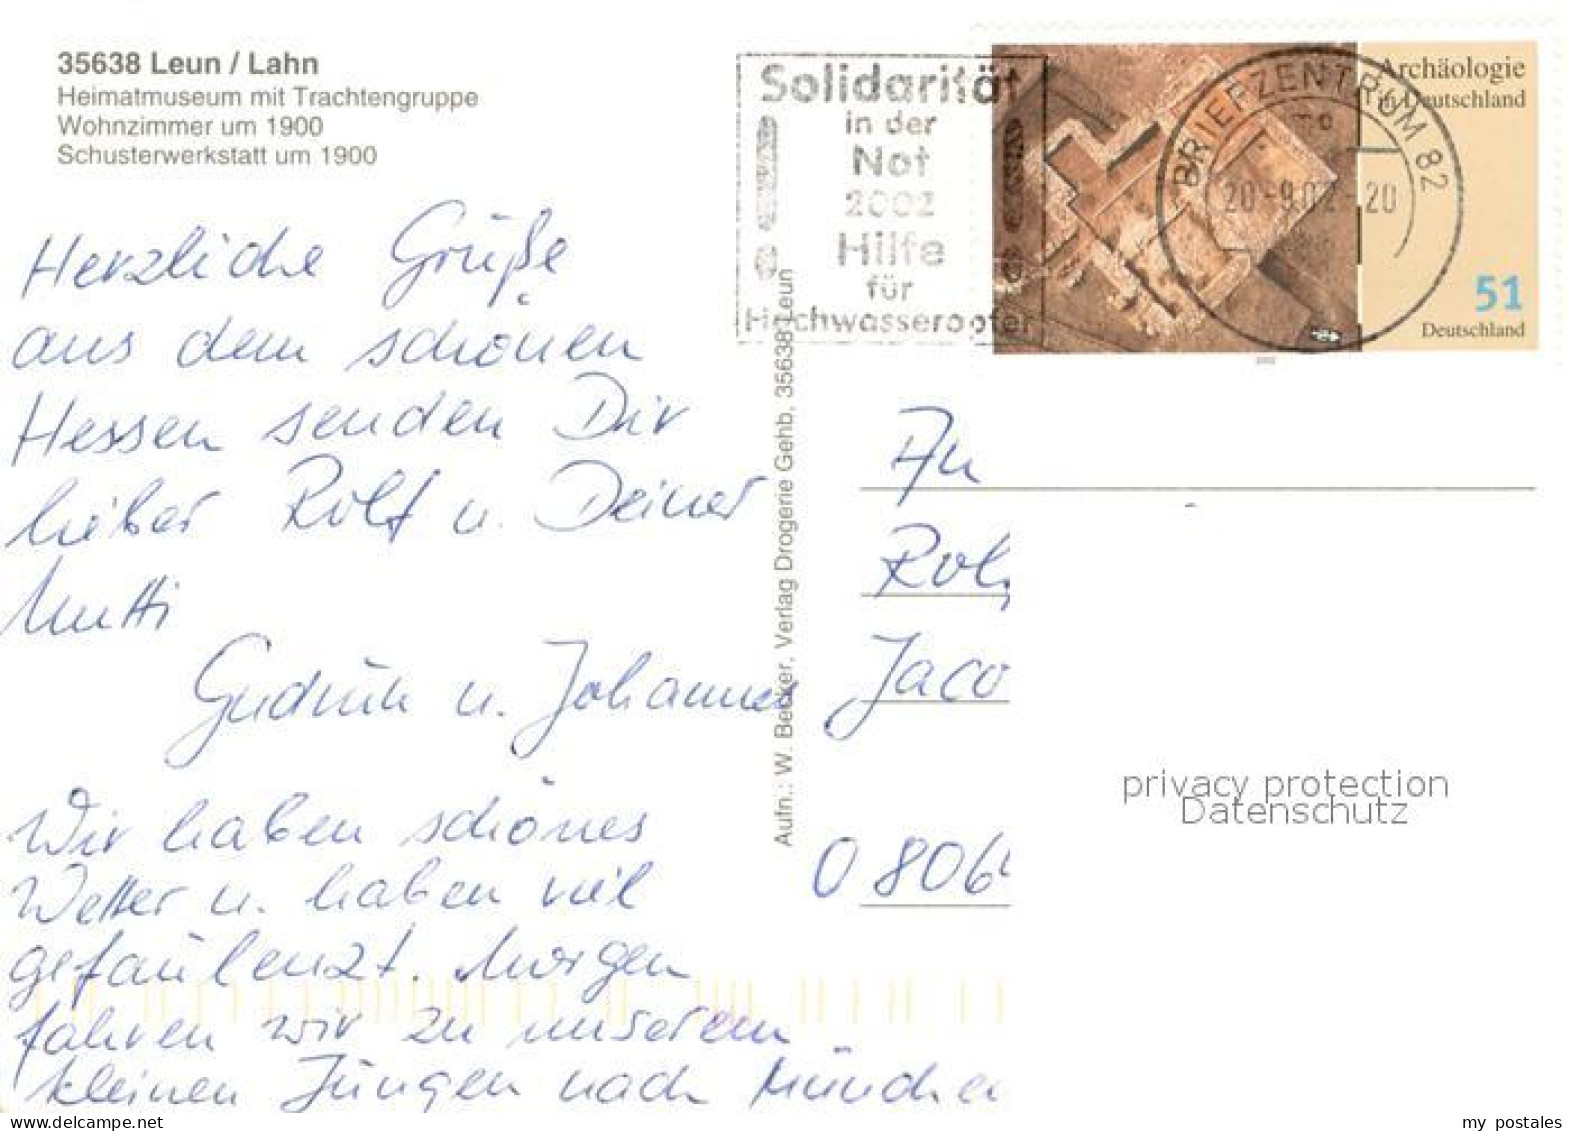 35638 Leun / Lahn
Heimatmuseum mit Trachtengruppe
Wohnzimmer um 1900
Schusterwerkstatt um 1900
Solidarität
in der
Not
2002
Hilfe
für
Hochwasseropfer
BRIEFZENTRUM 82
20.-9.02-20
Archäologie
in Deutschland
51
Deutschland
2002
Herzliche Grüße
aus dem schönen
Hessen senden Dir
lieber Rolf u. Deiner
Mutti
Gudrun u. Johannes
Wir haben schönes
Wetter u. haben viel
gefaulenzt. Morgen
fahren wir zu unserem
kleinen Jungen nach Münche
Aufn.: W. Becker, Verlag Drogerie Gehb, 35638 Leun
An
Rol
Jaco
0 806
privacy protection
Datenschutz
my postales